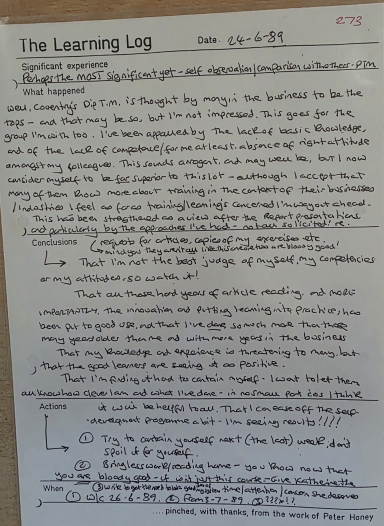 273
The Learning Log Date. 24-6-89
Significant experience
Perhaps the MOST significant yet - self observation/comparison with others - DTM
What happened
Well, Coventry's Dip T.M. is thought by many in the business to be the
tops - and that may be so, but I'm not impressed. This goes for the
group I'm with too. I've been appalled by the lack of basic knowledge,
and of the lack of competence/for me at least, absence of right attitude
amongst my colleagues. This sounds arrogant, and may well be, but I now
consider myself to be far superior to this lot - although I accept that
many of them know more about training in the context of their businesses
/Industries I feel as far as training/learning's concerned I'm way out ahead.
This has been strengthened as a view after the Report presentations
, and particularly by the approaches I've had - not all solicited! re.
requests for articles, copies of my exercises etc.
Conclusions mind you they are bloody good!
That I'm not the best judge of myself, my competencies
or my attitudes, so watch it!
That all those hard years of article reading, and more
IMPORTANTLY, the innovation and putting learning into practice, has
been put to good use, and that I've done so much more than those
many years older than me and with more years in the business
That my knowledge and experience is threatening to many, but
, that the good learners are seeing it as positive.
That I'm finding it hard to contain myself - I want to let them
all know how clever I am and what I've done - in no small part cos I think
Actions it will be helpful to all. That I can ease off the self-
development programme a bit - I'm seeing results!!!!
① Try to contain yourself next (the last) week, don't
spoil it for yourself.
② Bring less work/reading home - you know now that
you are bloody good - if with just this course - Give Katherine the
time/attention/ she deserves
When ① W/C 26-6-89. ② From 3-7-89.
....pinched, with thanks, from the work of Peter Honey